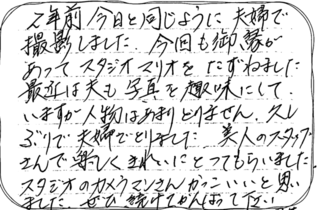 2年前今日と同じように夫婦で
撮影しました。今回も御縁が
あってスタジオマリオをたずねました
最近は夫も写真を趣味にして
いますが人物はあまりとりません。久し
ぶりで夫婦でとりました 美人のスタッフ
さんで楽しくきれいにとってもらいました
スタジオのカメラマンさんかっこいいと思い
ました。ぜひ続けてがんばって下さい